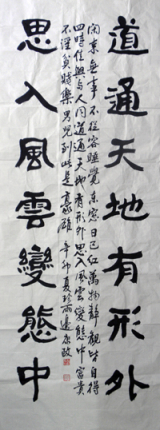 道通天地有形外
閑來無事不從容睡覺東窗日已紅萬物靜觀皆自得
四時佳興與人同道通天地有形外思入風雲變態中富貴
不淫貧賤樂男兒到此是豪雄辛卯夏
思入風雲變態中